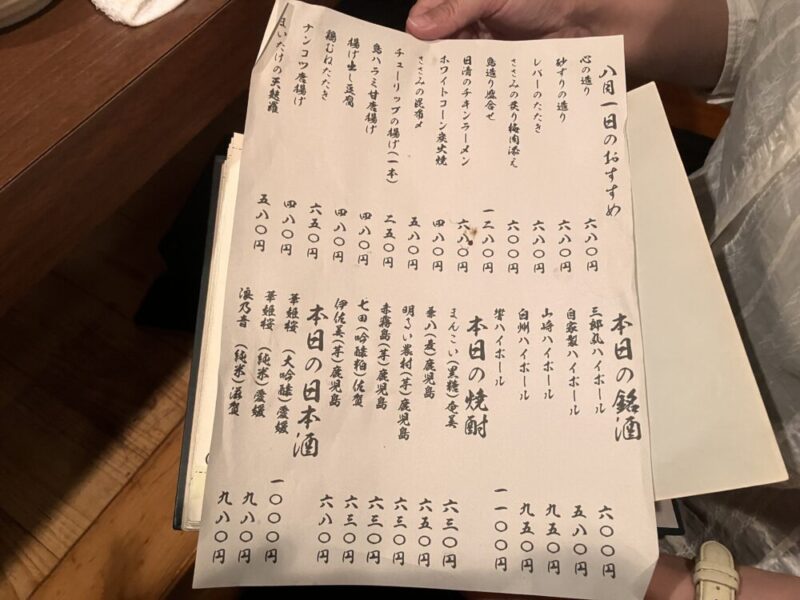 八月一日のおすすめ
心の造り 六八〇円
砂ずりの造り 六八〇円
レバーのたたき 六八〇円
ささみの炙り梅肉添え 六〇〇円
鳥造り盛合せ 一二八〇円
日清のチキンラーメン 六八〇円
ホワイトコーン炭火焼 四八〇円
ささみの昆布〆 五八〇円
チューリップの揚げ(一本) 二五〇円
鳥ハラミ甘唐揚げ 四八〇円
揚げ出し豆腐 四八〇円
鶏むねたたき 六五〇円
ナンコツ唐揚げ 四八〇円
まいたけの天麩羅 五八〇円
本日の銘酒
三郎丸ハイボール 六〇〇円
自家製ハイボール 五八〇円
山崎ハイボール 九五〇円
白州ハイボール 九五〇円
響ハイボール 一一〇〇円
本日の焼酎
まんこい(黒糖)奄美 六三〇円
華八(麦)鹿児島 六五〇円
明るい農村(芋)鹿児島 六三〇円
赤霧島(芋)鹿児島 六三〇円
七田(吟醸粕)佐賀 六三〇円
伊佐美(芋)鹿児島 六八〇円
本日の日本酒
華姫桜(大吟醸)愛媛 一〇〇〇円
華姫桜(純米)愛媛 九八〇円
浪乃音(純米)滋賀 九八〇円